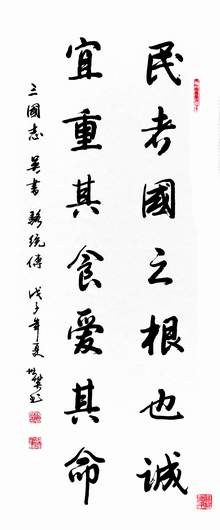 民者國之根也誠
宜重其食愛其命
三國志 吳書 駱統傳 戊子年夏